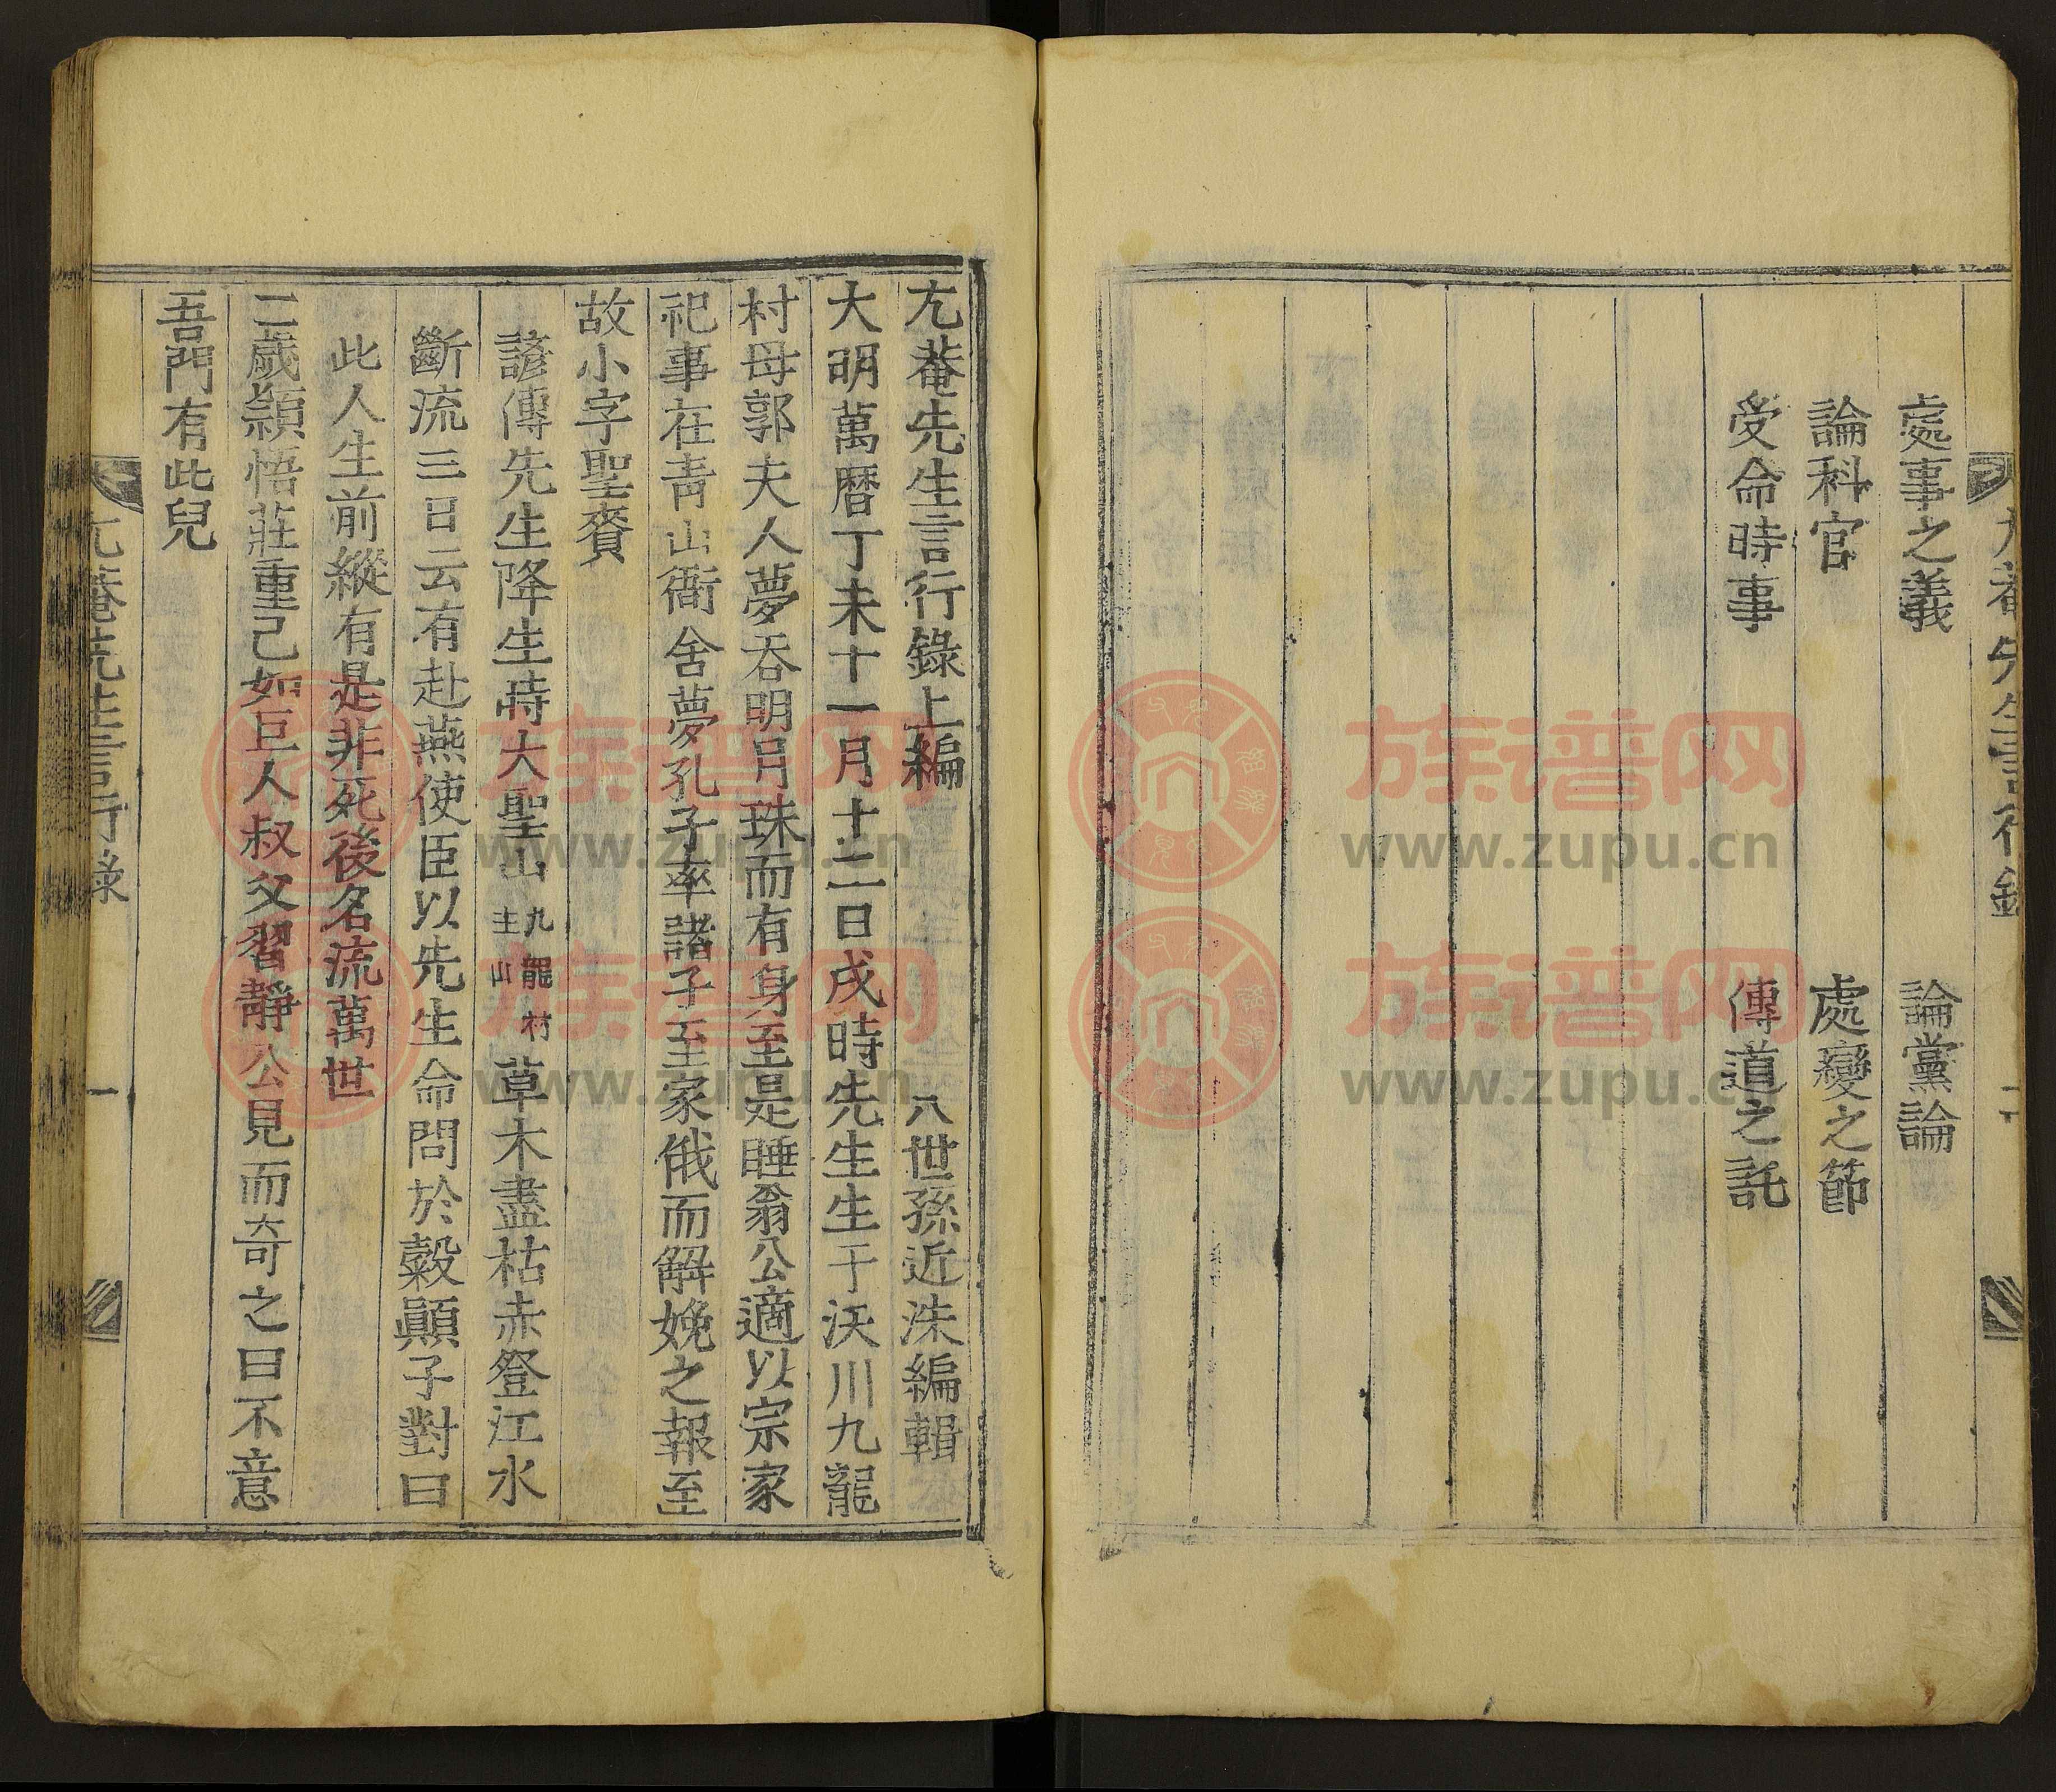 處事之義 論黨論
論科官 處變之節
受命時事 傳道之託
尤菴先生言行錄上編 八世孫近洙編輯
大明萬曆丁未十一月十二日戌時先生生于沃川九龍
村母郭夫人夢吞明月珠而有身至是睡翁公適以宗家
祀事在靑山衙舍夢孔子率諸子至家俄而解娩之報至
故小字聖賚
諺傳先生降生時大聖山九龍村主山草木盡枯赤登江水
斷流三日云有赴燕使臣以先生命問於糓顚子對曰
此人生前縱有是非死後名流萬世
二歲穎悟莊重已如巨人叔父習靜公見而奇之曰不意
吾門有此兒
尤菴先生言行錄 一
族谱网
www.zupu.cn
族谱网
www.zupu.cn
族谱网
www.zupu.cn
族谱网
www.zupu.cn